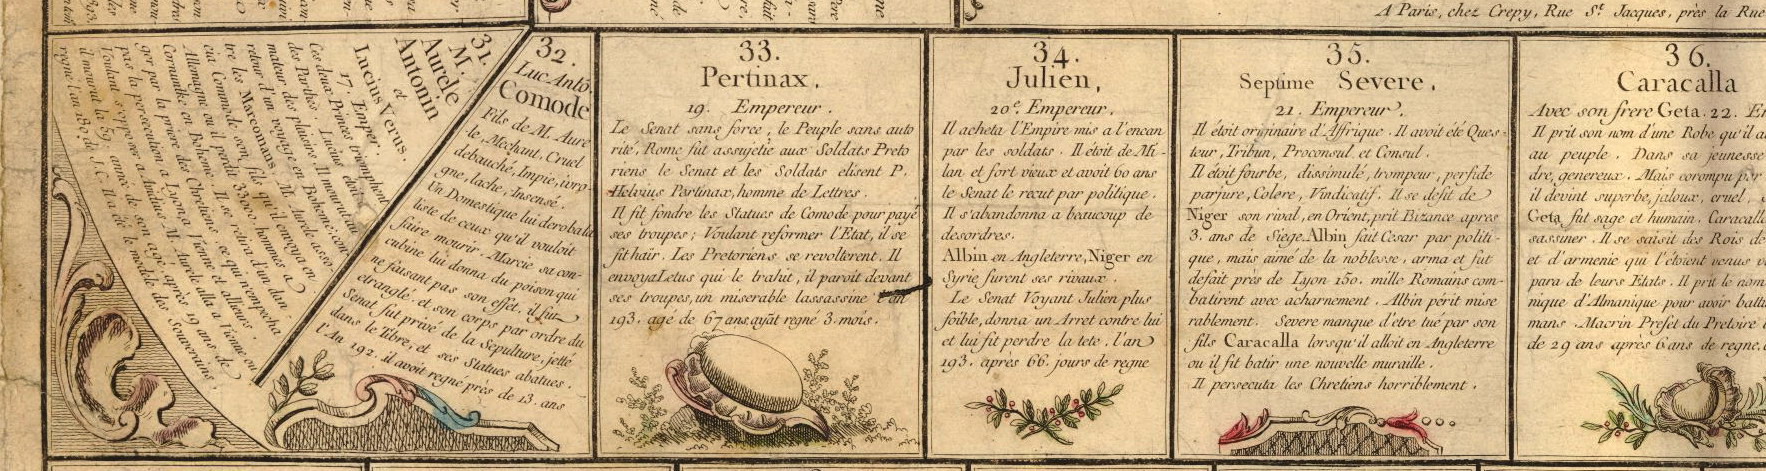 A Paris, chez Crepy, Rue S.t Jacques, près la Rue
31.
M.
Aurele
Antonin
et
Lucius Verus
17. Emper.
Ces deux Princes triomphent
des Parthes. Lucius étoit
mateur des plaisirs. Il mourut au
retour d'un voyage en Boheme
tre les Marcomans. M. Aurele asso
cia Commode son fils qu'il envoya en
Allemagne ou il perdit 33000 hommes a
Cornunthe en Boheme. Il se retira d'un dan
ger par la priere des Chretiens ce qui n'empecha
pas la persecution a Lyon a Vienne et ailleurs.
Voulant s'opposer a M. Aurele alla a Vienne ou
il mourut la 59.e année de son age, après 19 ans de
regne l'an 180 de J.C. Il a été le modele des Souverains.
32.
Luc. Antô.
Comode
Fils de M. Aure
le, Mechant, Cruel
debauché, Impie, ivro-
gne, lache, Insensé.
Un Domestique lui deroba la
liste de ceux qu'il vouloit
faire mourir. Marcie sa con-
cubine lui donna du poison qui
ne faisant pas son effet, il fut
etranglé et son corps par ordre du
Senat fut privé de la Sepulture, jetté
dans le Tibre, et ses Statues abatues.
l'An 192. il avoit regné près de 13. ans
33.
Pertinax.
19. Empereur.
Le Senat sans force, le Peuple sans auto
rité, Rome fut assujetie aux Soldats Preto
riens le Senat et les Soldats elisent P.
Helvius Pertinax, homme de Lettres.
Il fit fondre les Statues de Comode pour payé
ses troupes; Voulant reformer l'Etat, il se
fit haïr. Les Pretoriens se revolterent. Il
envoya Letus qui le trahit, il paroit devant
ses troupes, un miserable lassassine l'an
193. agé de 67 ans, ayãt regné 3. mois.
34.
Julien,
20.e Empereur.
Il acheta l'Empire mis a l'encan
par les soldats. Il étoit de Mi-
lan et fort vieux et avoit 60 ans
le Senat le reçut par politique.
Il s'abandonna a beaucoup de
desordres.
Albin en Angleterre, Niger en
Syrie furent ses rivaux.
Le Senat Voyant Julien plus
foible, donna un Arret contre lui
et lui fit perdre la tete. l'an
193. après 66. jours de regne
35.
Septime Severe.
21. Empereur.
Il étoit originaire d'Affrique. Il avoit été Ques-
teur, Tribun, Proconsul et Consul.
Il étoit fourbe, dissimulé, trompeur, perfide
parjure, Colere, Vindicatif. Il se defit de
Niger son rival, en Orient, prit Bizance apres
3. ans de Siege. Albin fait Cesar par politi-
que, mais aimé de la noblesse, arma et fut
defait près de Lyon 150. mille Romains com-
batirent avec acharnement. Albin périt mise
rablement. Severe manque d'etre tué par son
fils Caracalla lorsqu'il alloit en Angleterre
ou il fit batir une nouvelle muraille.
Il persecuta les Chretiens horriblement.
36.
Caracalla
Avec son frere Geta. 22. Em
Il prit son nom d'une Robe qu'il
au peuple. Dans sa jeunesse
dre, genereux. Mais corompu par
il devint superbe, jaloux, cruel,
Geta fut sage et humain. Caracalla
sassiner. Il se saisit des Rois de
et d'armenie qui l'étoient venus
para de leurs Etats. Il prit le nom
nique d'Almanique pour avoir battu
mans. Macrin Prefet du Pretoire
de 29 ans après 6 ans de regne,